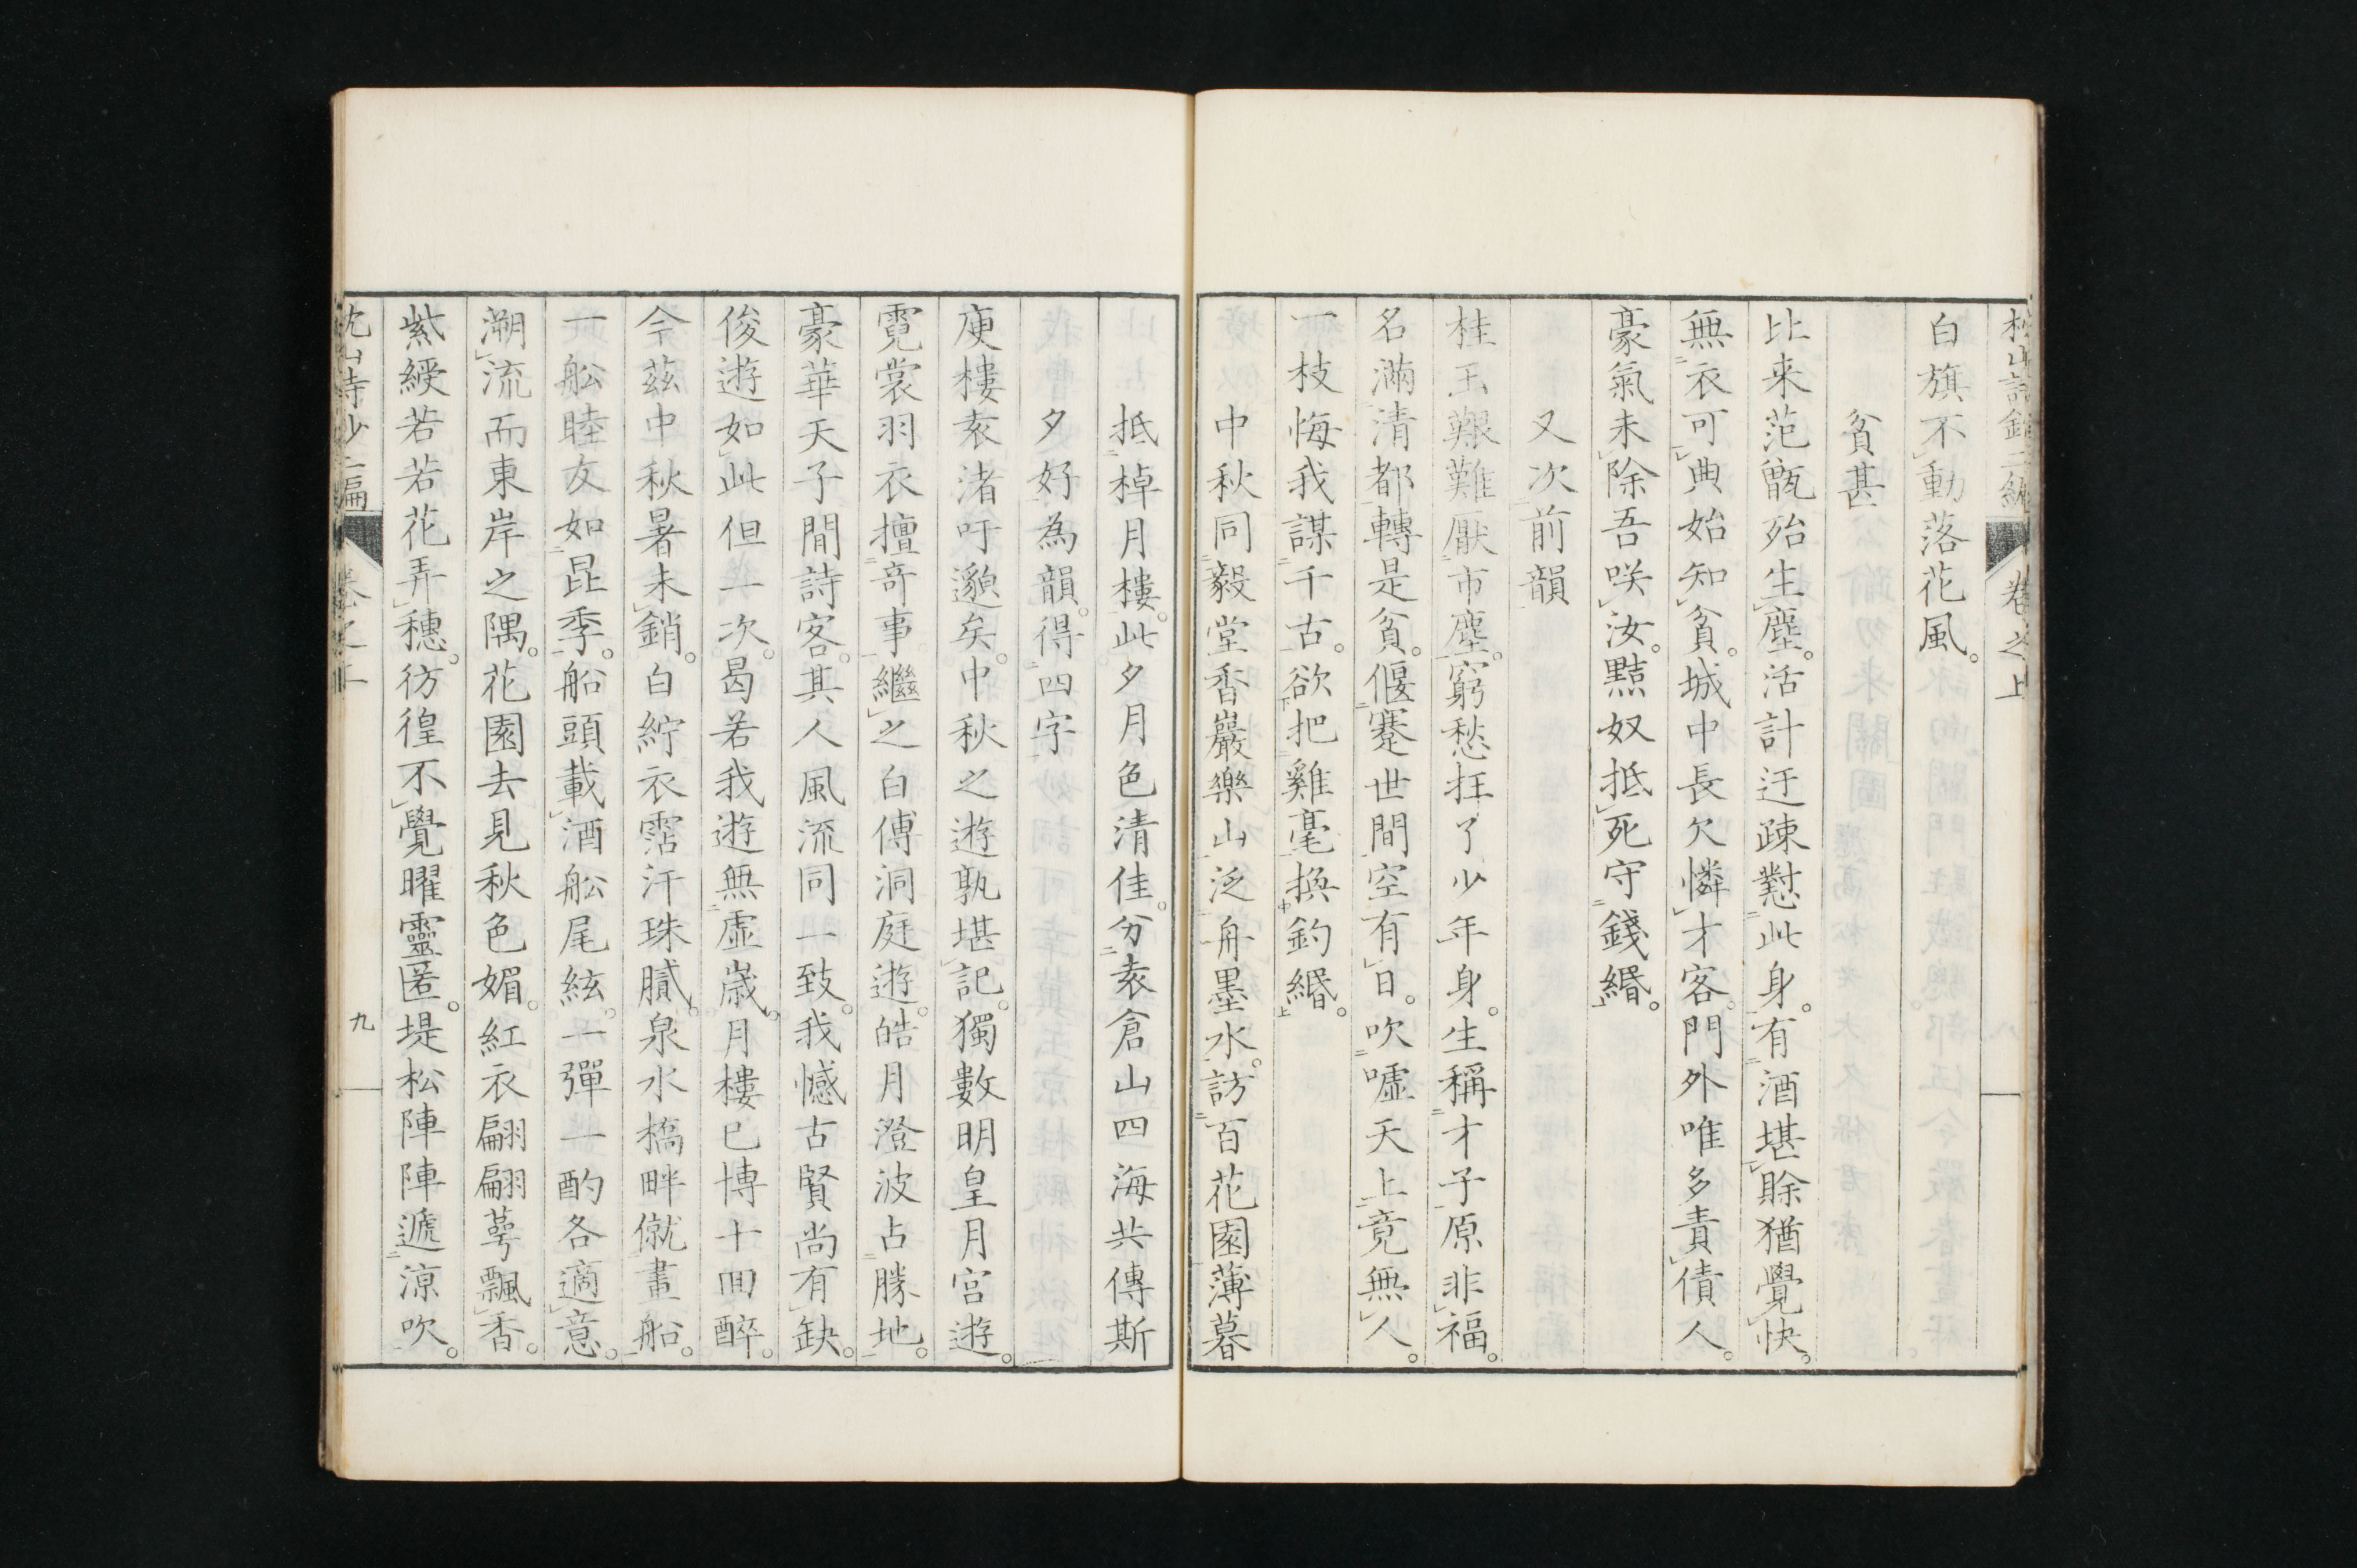 白旗不動落花風。
貧甚
比来范甑殆生塵。活計迂疎懟此身。有酒堪賖猶覺快。
無衣可典始知貧。城中長欠憐才客。門外唯多責債人。
豪氣未除吾咲汝。黠奴抵死守錢緡。
又次前韻
桂玉艱難厭市塵。窮愁抂了少年身。生稱才子原非福。
名滿清都轉是貧。偃蹇世間空有日。吹噓天上竟無人。
一枝悔我謀千古。欲把雞毫換釣緡。
中秋同毅堂香巖樂山泛舟墨水。訪百花園薄暮
抵棹月樓。此夕月色清佳。分袁倉山四海共傳斯
夕好為韻。得四字
庾樓袁渚吁邈矣。中秋之遊孰堪記。獨數明皇月宮遊。
霓裳羽衣擅奇事。繼之白傅洞庭遊。皓月澄波占勝地。
豪華天子間詩客。其人風流同一致。我憾古賢尚有缺。
俊遊如此但一次。曷若我遊無虛歲。月樓已博十回醉。
今茲中秋暑未銷。白紵衣霑汗珠膩。泉水橋畔僦畫船。
一舩睦友如昆季。船頭載酒舩尾絃。一彈一酌各適意。
溯流而東岸之隅。花園去見秋色媚。紅衣翩翩萼飄香。
紫綬若若花弄穗。彷徨不覺曜靈匿。堤松陣陣遞涼吹。
卷之上
九